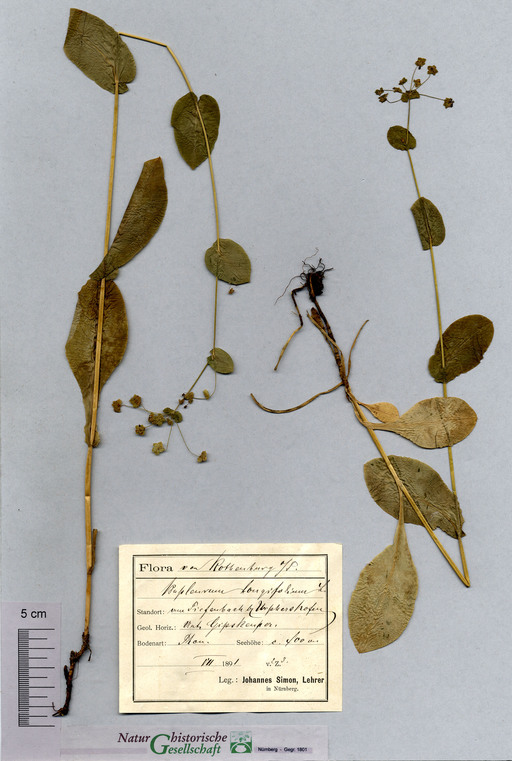 Flora von Rothenburg o/T.
Bupleurum longifolium L.
Standort: von Tiefenbach b/
Geol. Horiz.: Gipskeuper.
Bodenart: Seehöhe: c. 400 m.
VII. 1891.
Leg.: Johannes Simon, Lehrer
in Nürnberg.
5 cm
Naturhistorische
Gesellschaft
Nürnberg - Gegr. 1801